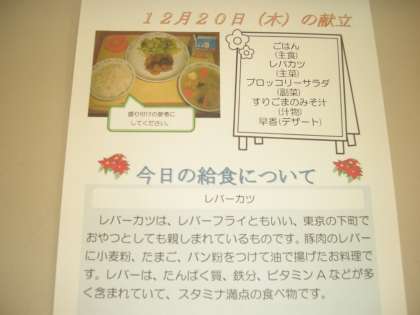 12月20日（木）の献立
ごはん
(主食)
レバカツ
(主菜)
ブロッコリーサラダ
(副菜)
すりごまのみそ汁
(汁物)
早香(デザート)
盛り付けの参考に
してください。
今日の給食について
レバーカツ
レバーカツは、レバーフライともいい、東京の下町で
おやつとしても親しまれているものです。豚肉のレバー
に小麦粉、たまご、パン粉をつけて油で揚げたお料理で
す。レバーは、たんぱく質、鉄分、ビタミンAなどが多
く含まれていて、スタミナ満点の食べ物です。